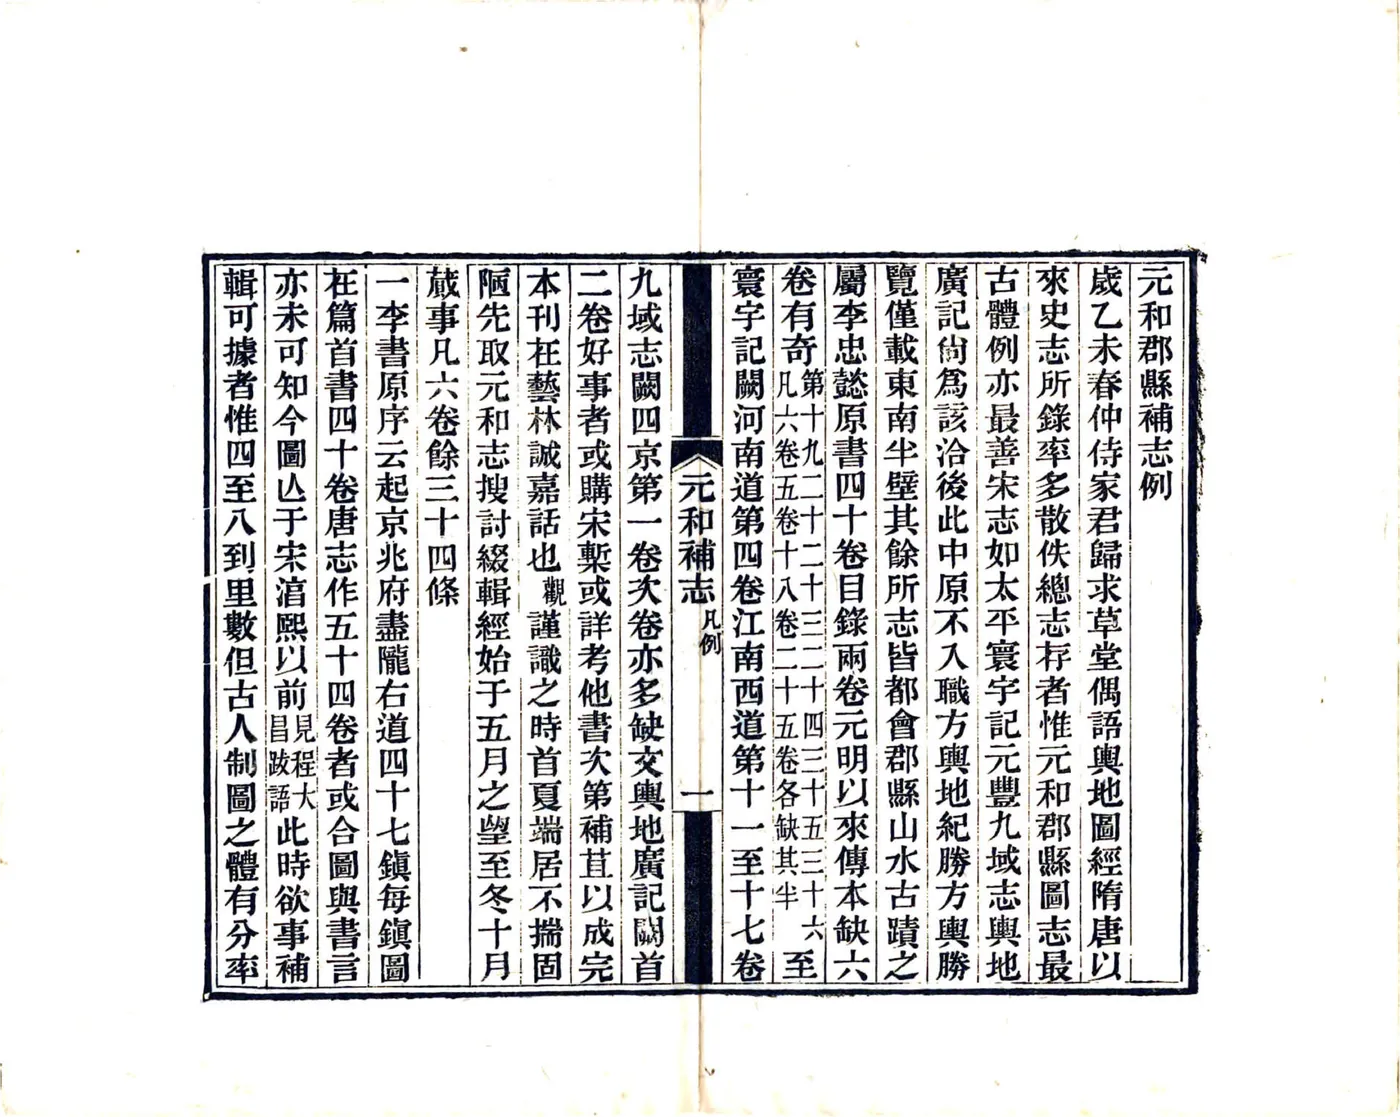 元和郡縣補志例
歲乙未春仲侍家君歸求草堂偶語輿地圖經隋唐以
來史志所錄率多散佚總志存者惟元和郡縣圖志最
古體例亦最善宋志如太平寰宇記元豐九域志輿地
廣記尙爲該洽後此中原不入職方輿地紀勝方輿勝
覽僅載東南半壁其餘所志皆都會郡縣山水古蹟之
屬李忠懿原書四十卷目錄兩卷元明以來傳本缺六
卷有奇第十九二十二十三二十四三十五三十六凡六卷五卷十八卷二十五卷各缺其半至
寰宇記闕河南道第四卷江南西道第十一至十七卷
元和補志 凡例 一
九域志闕四京第一卷次卷亦多缺文輿地廣記闕首
二卷好事者或購宋槧或詳考他書次第補苴以成完
本刊在藝林誠嘉話也觀謹識之時首夏端居不揣固
陋先取元和志搜討綴輯經始于五月之朢至冬十月
蕆事凡六卷餘三十四條
一李書原序云起京兆府盡隴右道四十七鎭每鎭圖
在篇首書四十卷唐志作五十四卷者或合圖與書言
亦未可知今圖亾于宋湻熙以前見程大昌跋語此時欲事補
輯可據者惟四至八到里數但古人制圖之體有分率